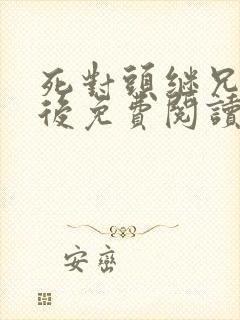 死對頭繼兄
後免費閱讀
安巒